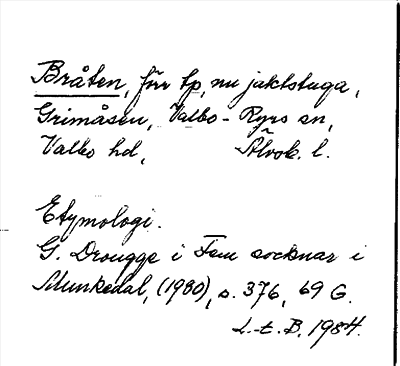 Bråten, förr tp, nu jaktstuga,
Grimåsen, Valbo-Ryrs sn,
Valbo hd, Älvsb. l.
Etymologi.
G. Drougge i Fem socknar i
Munkedal, (1980), s. 376, 69 G.
L-t. B. 1984.